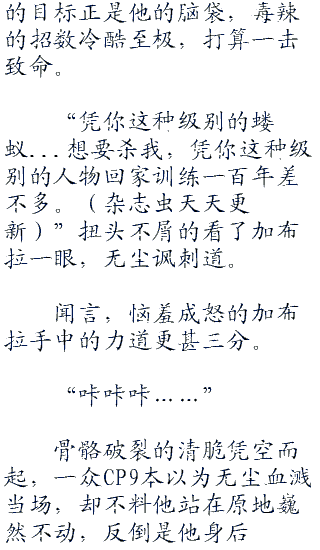 的目标正是他的脑袋，毒辣
的招数冷酷至极，打算一击
致命。
“凭你这种级别的蝼
蚁...想要杀我，凭你这种级
别的人物回家训练一百年差
不多。（杂志虫天天更
新）”扭头不屑的看了加布
拉一眼，无尘讽刺道。
闻言，恼羞成怒的加布
拉手中的力道更甚三分。
“咔咔咔……”
骨骼破裂的清脆凭空而
起，一众CP9本以为无尘血溅
当场，却不料他站在原地巍
然不动，反倒是他身后